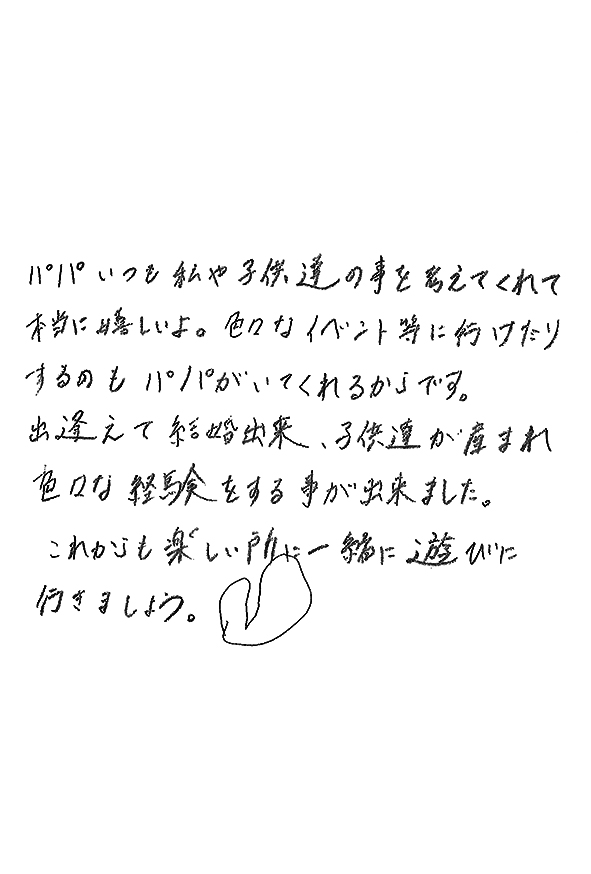 パパいつも私や子供達の事を考えてくれて
本当に嬉しいよ。色々なイベント等に行けたり
するのもパパがいてくれるからです。
出逢えて結婚出来、子供達が産まれ
色々な経験をする事が出来ました。
これからも楽しい所に一緒に遊びに
行きましょう。